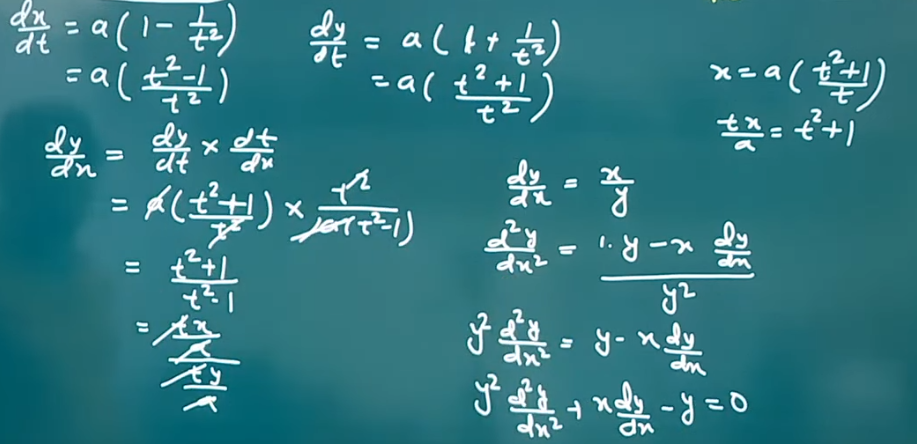 dx/dt = a(1 - 1/t²)
= a(t²-1/t²)
dy/dt = a(1 + 1/t²)
= a(t²+1/t²)
x = a(t²+1/t)
tx/a = t²+1
dy/dx = dy/dt × dt/dx
= a(t²+1/t²) × t²/a(t²-1)
= t²+1/t²-1
= tx/a/ty/a
dy/dx = x/y
d²y/dx² = 1·y - x dy/dx/y²
y² d²y/dx² = y - x dy/dx
y² d²y/dx² + x dy/dx - y = 0